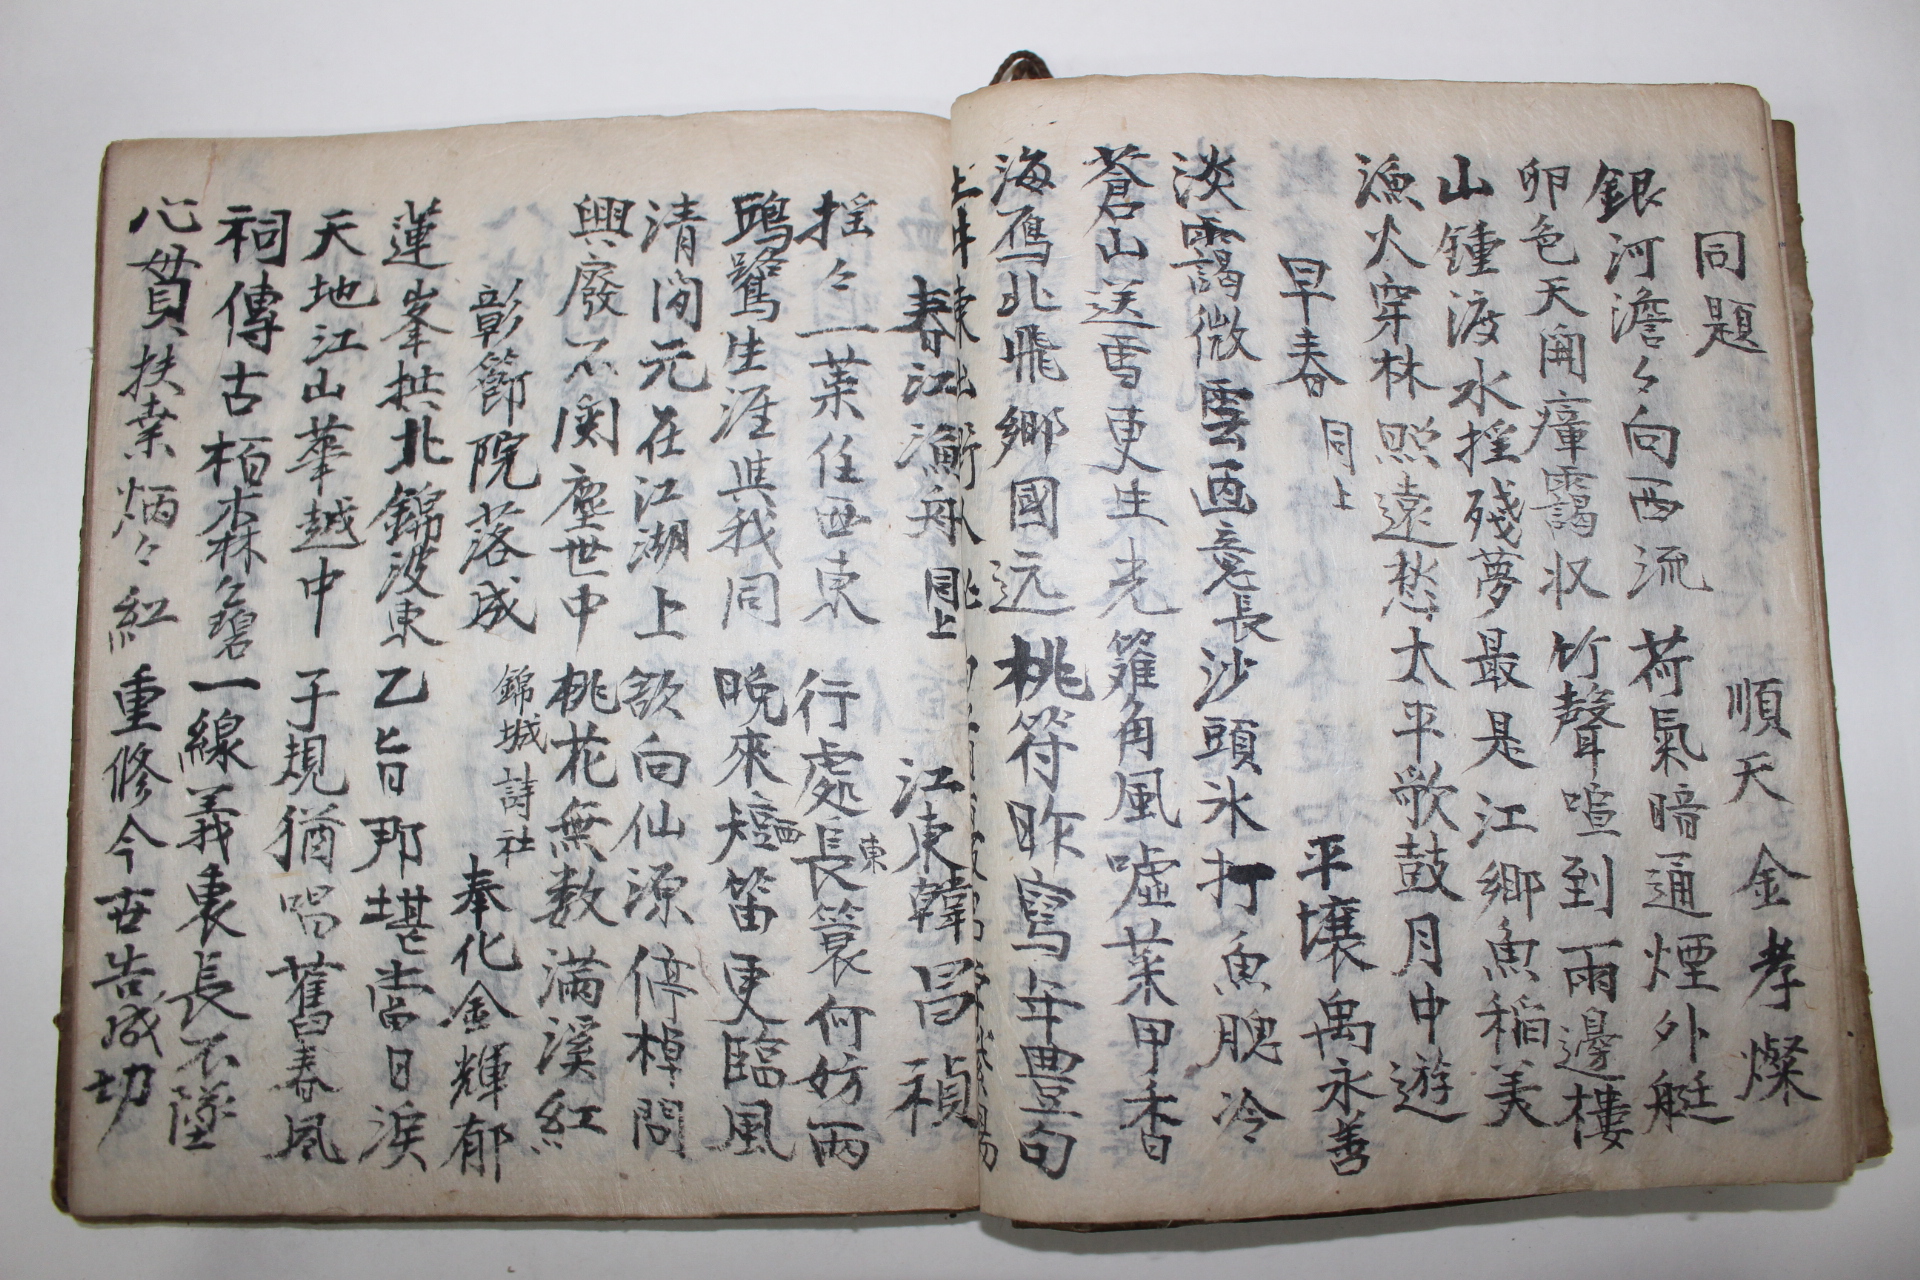 同題 順天 金孝燦
銀河澹々向西流 荷氣暗通煙外艇
卯色天開瘴靄収 竹聲喧到雨邊樓
山鍾渡水搖殘夢 最是江鄉魚稻美
漁火穿林照遠愁 太平歌鼓月中遊
早春 同上 平壤 禹永善
淡靄微雲画意長 沙頭氷打魚腮冷
蒼山送雪更生光 籬角風噓菜甲香
海鴈北飛鄉國远 桃符昨寫年豊句
春江漁舟 同上 江東 韓昌禎
搖々一葉任西東 行處長簑何妨雨
東
鷗鷺生涯與我同 晚來短笛更臨風
西
清閒元在江湖上 欲向仙源停棹問
興廢不関塵世中 桃花無数滿溪紅
彰節院落成 錦城詩社 奉化 金輝郁
蓮峯拱北錦波東 乙旨那堪當日淚
天地江山華越中 子規猶唱舊春風
祠傳古栢森々碧 一線義裏長不墜
心貫扶桒炳々紅 重修今古告成功